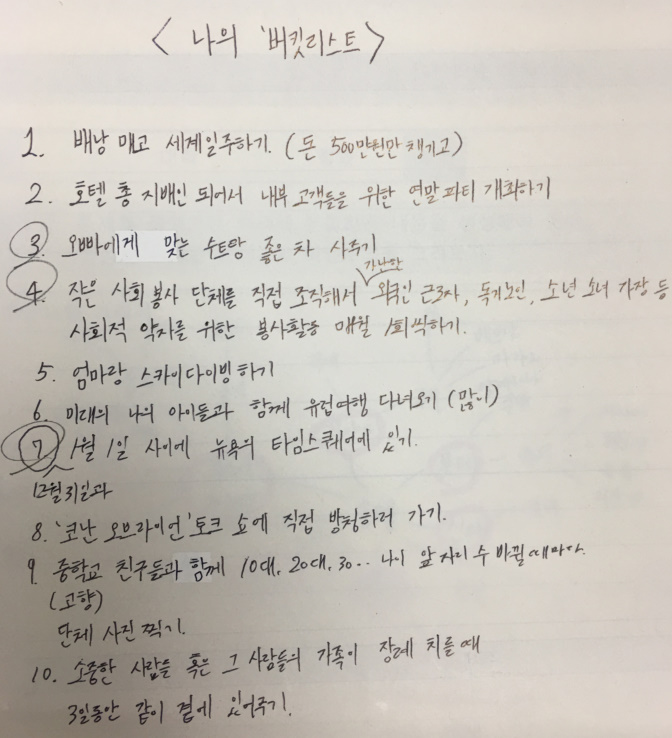 < 나의 '버킷리스트 >
1. 배낭 매고 세계일주하기. (돈 500만원만 챙기고)
2. 호텔 총 지배인 되어서 내부 고객들을 위한 연말파티 개최하기
3. 오빠에게 맞는 수트랑 좋은 차 사주기
가난한
4. 작은 사회봉사 단체를 직접 조직해서 외국인 근로자, 독거노인, 소년 소녀 가장 등
사회적 약자를 위한 봉사활동 매월 1회씩하기.
5. 엄마랑 스카이다이빙하기
6. 미래의 나의 아이들과 함께 유럽여행 다녀오기 (많이)
7 1월 1일 사이에 뉴욕의 타임스퀘어에 있기.
12월 31일과
8. '코난 오브라이언' 토크 쇼에 직접 방청하러 가기.
9. 중학교 친구들과 함께 10대, 20대, 30.. 나이 앞자리 수 바뀔 때마다.
(고향)
단체 사진 찍기.
10. 소중한 사람들 혹은 그 사람들의 가족이 장례 치를 때
3일동안 같이 곁에 있어주기.